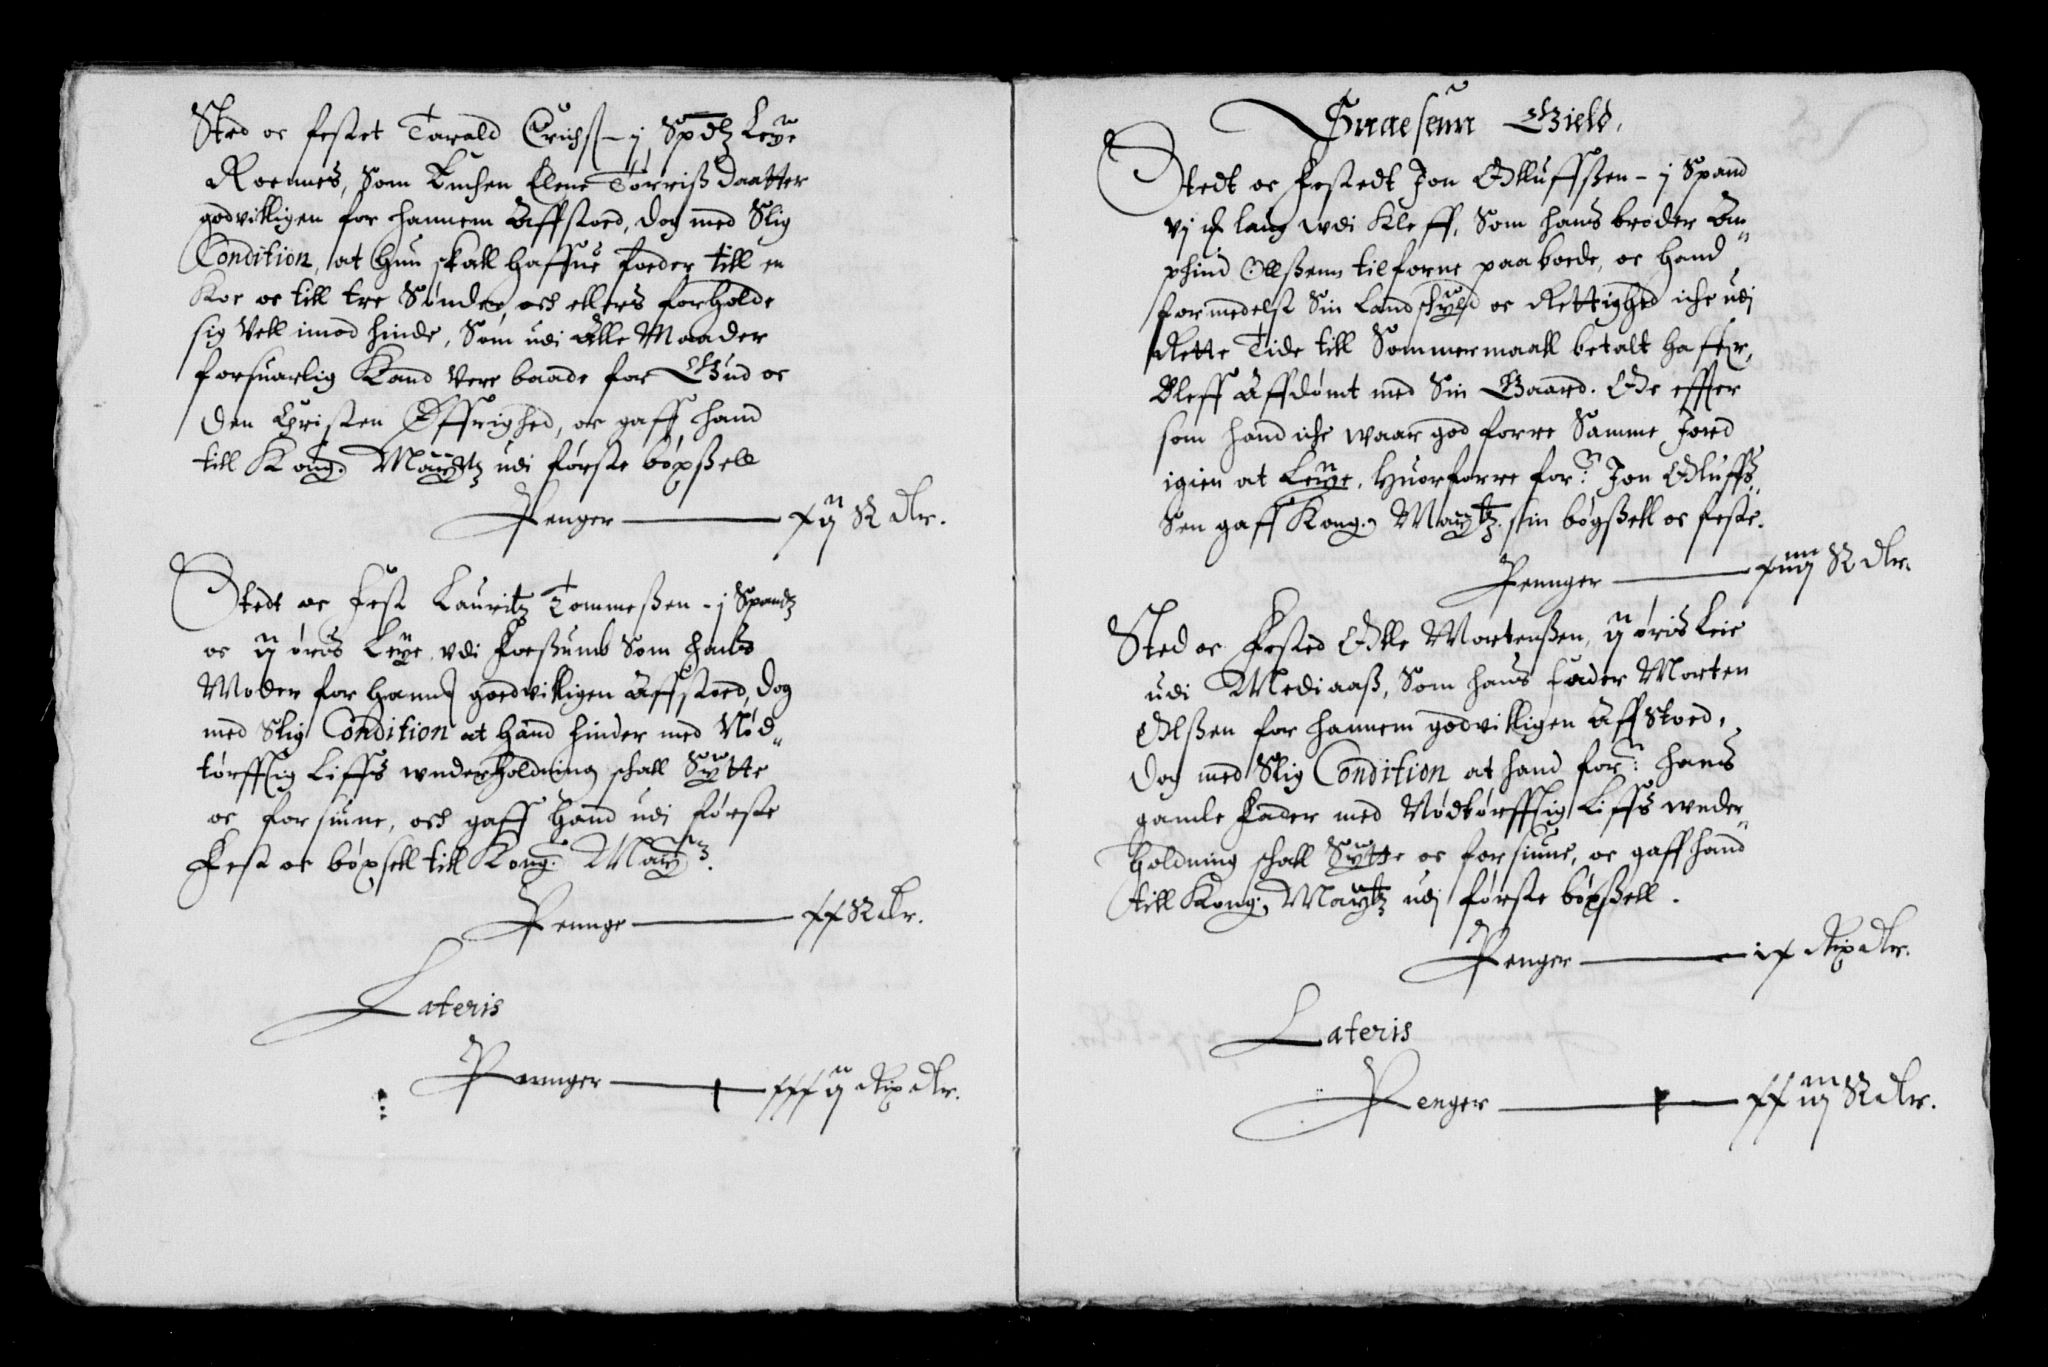 Sted oc festet Tarald Erichs - j Spdtz Leye
Roennes, Som Enchen Elene Tørriss daatter
godvilligen for hannem Affstoed, dog med Slig
Condition, at hun skall haffue foeder till en
Koe oc till tre Sønder, och ellers forholde
sig Vell imod hinde, Som udi Alle Maader
forsuarlig Kand Vere baade for Gud oc
den Christen Øffrighed, oc gaff hand
till Kong. Maytz udi første bøxssell
Penger xij R dlr.
Stedt oc Fest Lauritz Tommessen - j Spandtz
oc ij øris Leye vdi Foessumb Som hands
Moder for hannem goedvilligen Affstoed, dog
med Slig Condition at hand hinder med Nød-
tørfftig Liffs wnderholdning schall Sytte
oc forsiune, och gaff hand udi første
Fest oc bøxsell till Kong. Maytz.
Pennge xx R dlr.
Lateris
Pennger xxxij Rix dlr.
Snaesenn Gield.
Stedt oc Festedt Jon Olluffssen - j Spand
vj laug wdi Kleff, Som hans broder Am-
phind Ollssenn tilforne paa boede, oc hand
formedelst Sin Landschyld oc Rettighed iche udj
Rette Tide till Sommermaall betalt haffer,
Bleff Affdømt med Sin Gaard. Oc effter
som hand iche waar god forre Samme Jord
igien at Leye, huorforre for: Jon Oluffs-
Sen gaff Kong. Maytz sin bøgssell oc feste.
Pennger xiiij R dlr.
Sted oc Fested Olle Mortenssen, ij øris Leie
udi Mediaass, Som hans Fader Morten
Olssen for hannem godvilligen Aff Stoed,
dog med Slig Condition at hand for: hans
gamle Fader med Nødtørfftig Liffs wnder-
holdning schall Sytte oc forsiune, oc gaff hand
till Kong. Maytz udj første bøxssell.
Penger ix Rix dlr.
Lateris
Penger xxiij R dlr.